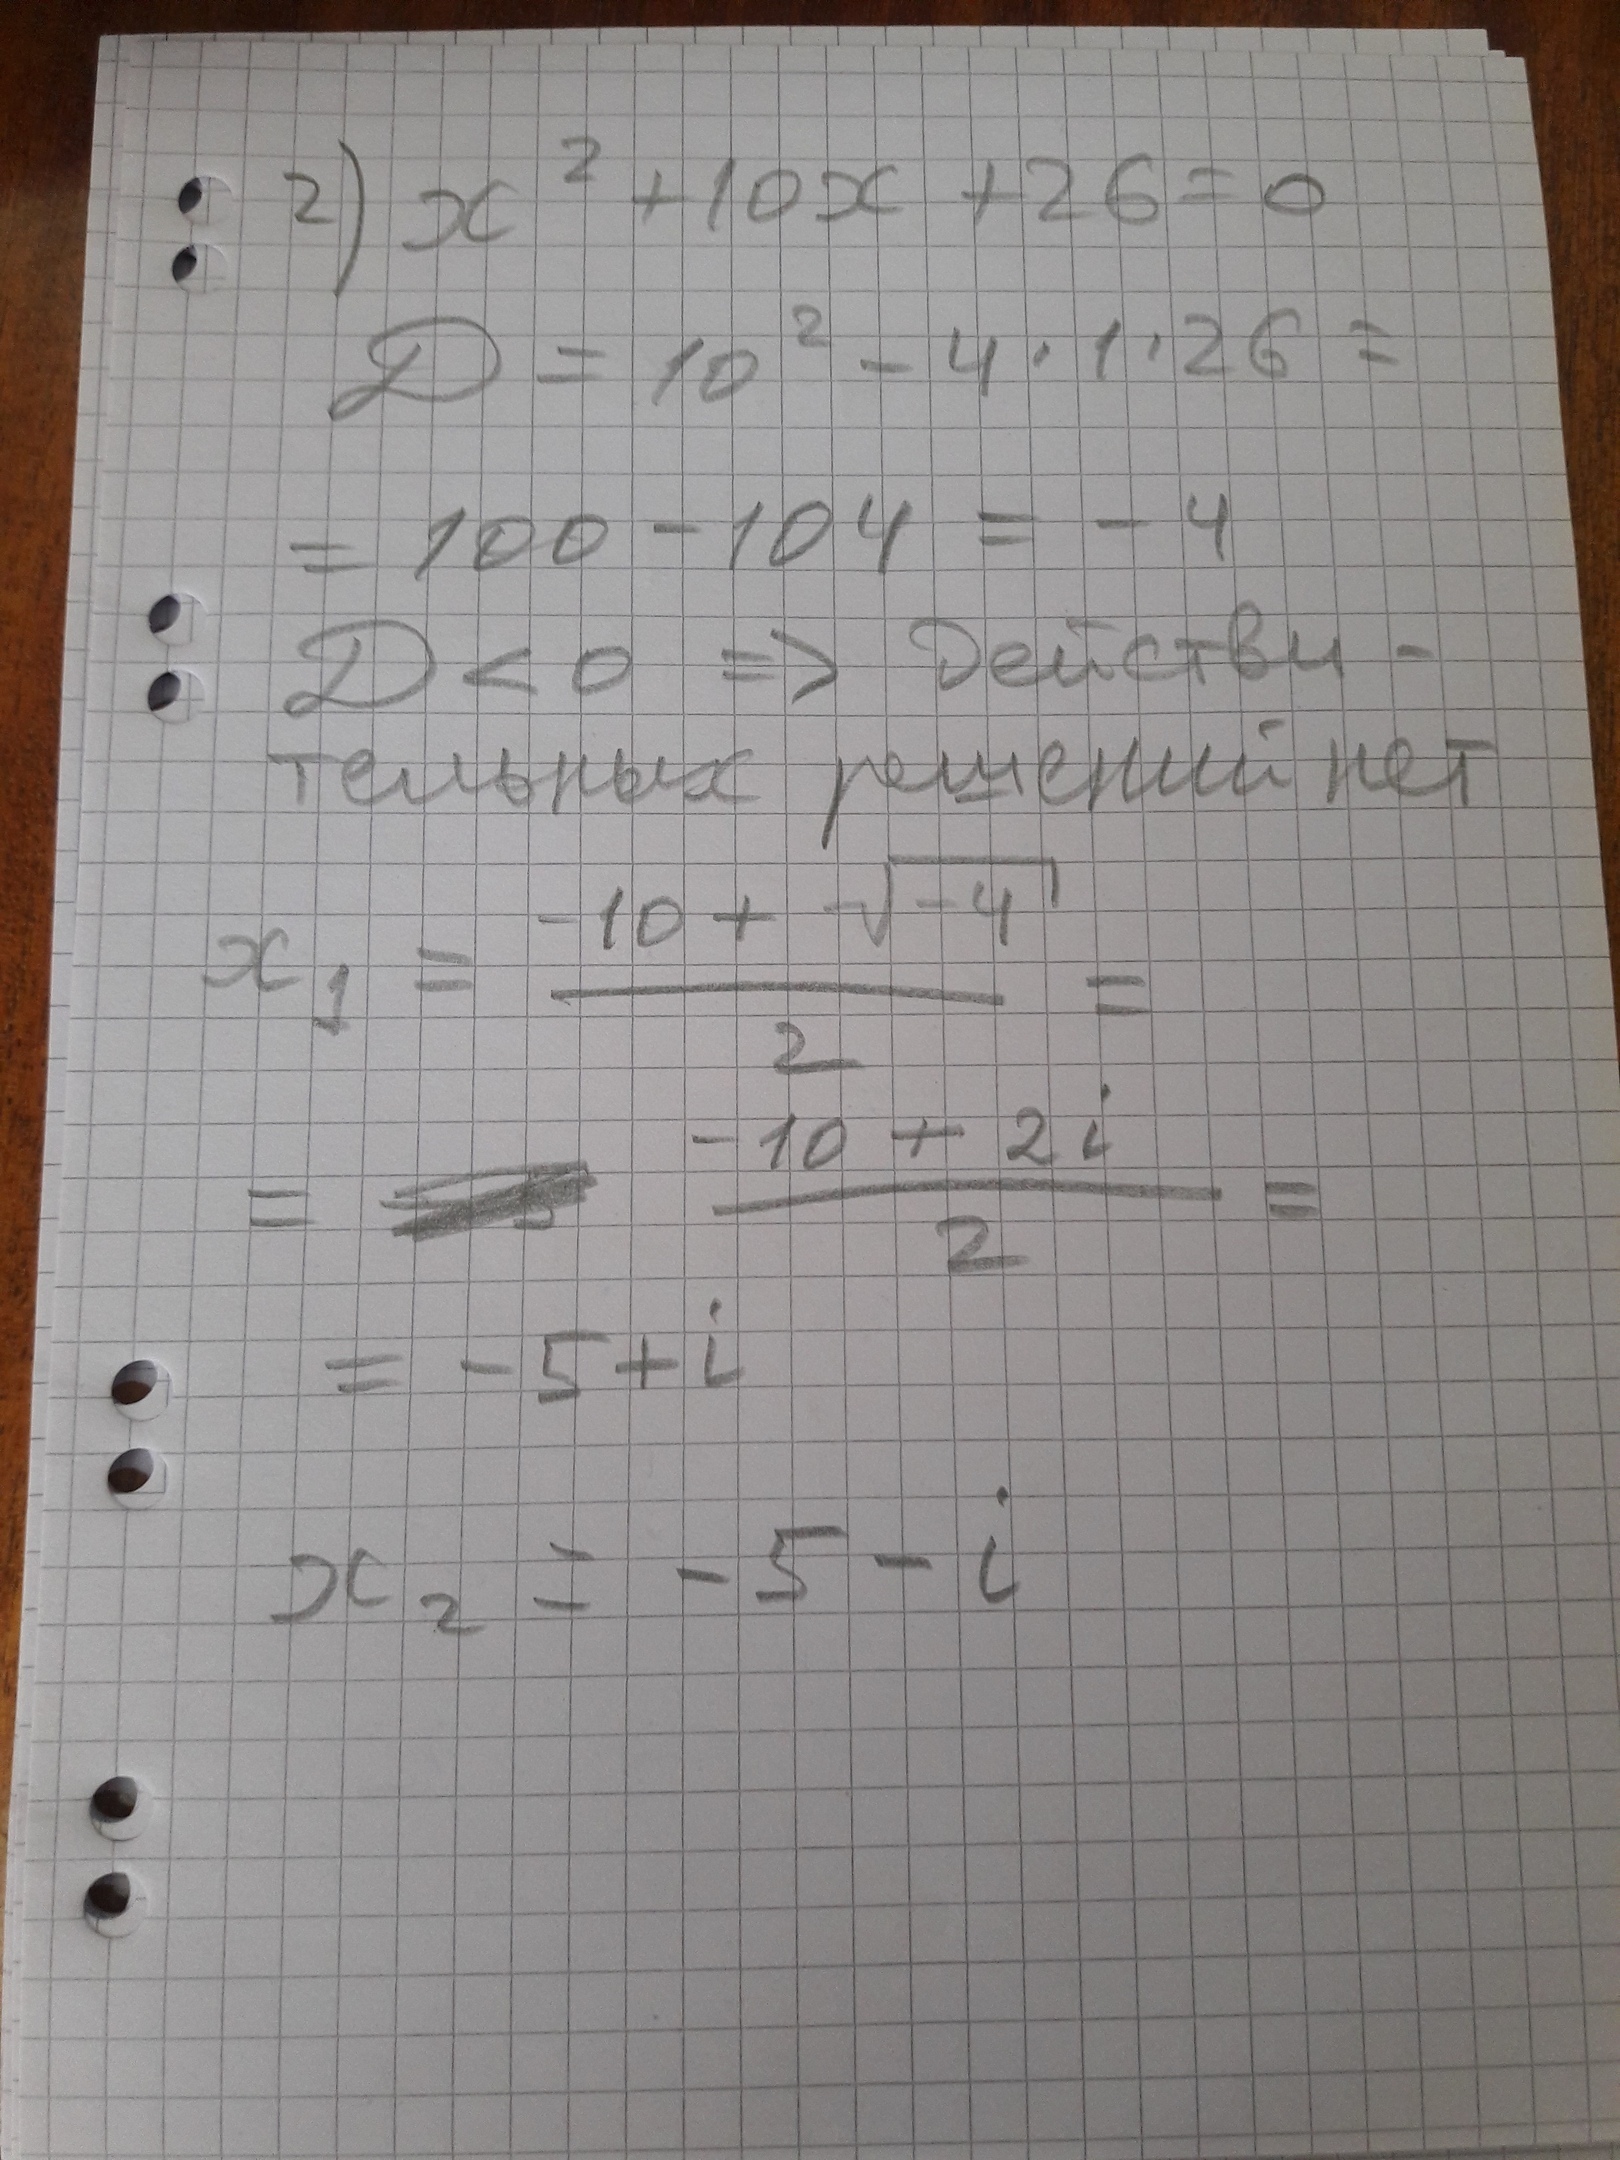 2) x² + 10x + 26 = 0
D = 10² - 4 · 1 · 26 =
= 100 - 104 = - 4
D < 0 => действи -
тельных решений нет
x₁ = (-10 + √-4) / 2 =
= (-10 + 2i) / 2 =
= - 5 + i
x₂ = - 5 - i